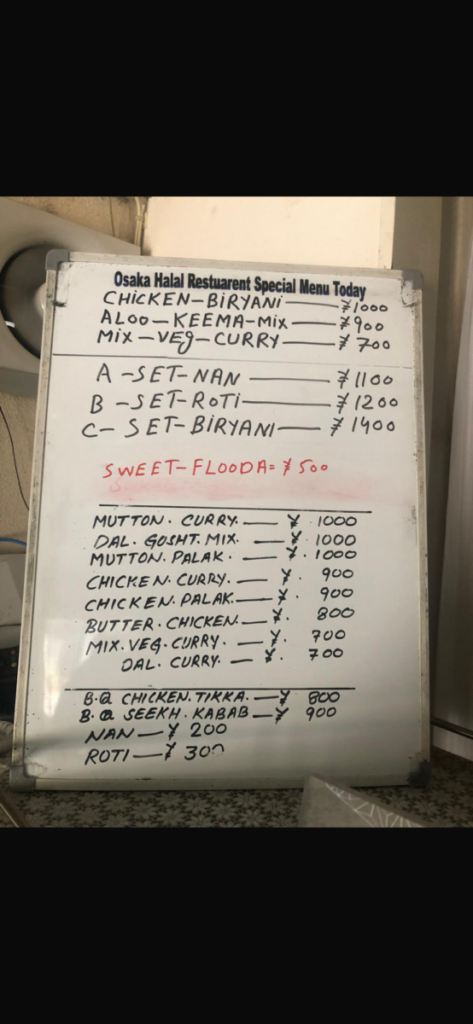 Osaka Halal Restuarent Special Menu Today
CHICKEN-BIRYANI — ¥1000
ALOO-KEEMA-Mix — ¥900
Mix-VEg-CURRY — ¥700
A-SET-NAN — ¥1100
B-SET-ROTI — ¥1200
C-SET-BIRYANI — ¥1400
SWEET-FLOODA= ¥500
MUTTON. CURRY. — ¥. 1000
DAL. GOSHT. MIX. — ¥. 1000
MUTTON. PALAK. — ¥. 1000
CHICKEN. CURRY. — ¥. 900
CHICKEN. PALAK. — ¥. 900
BUTTER. CHICKEN. — ¥. 800
MIX. VEG. CURRY. — ¥. 700
DAL. CURRY. — ¥. 700
B.Q CHICKEN. TIKKA. — ¥ 800
B.Q SEEKH. KABAB — ¥ 900
NAN — ¥ 200
ROTI — ¥ 300